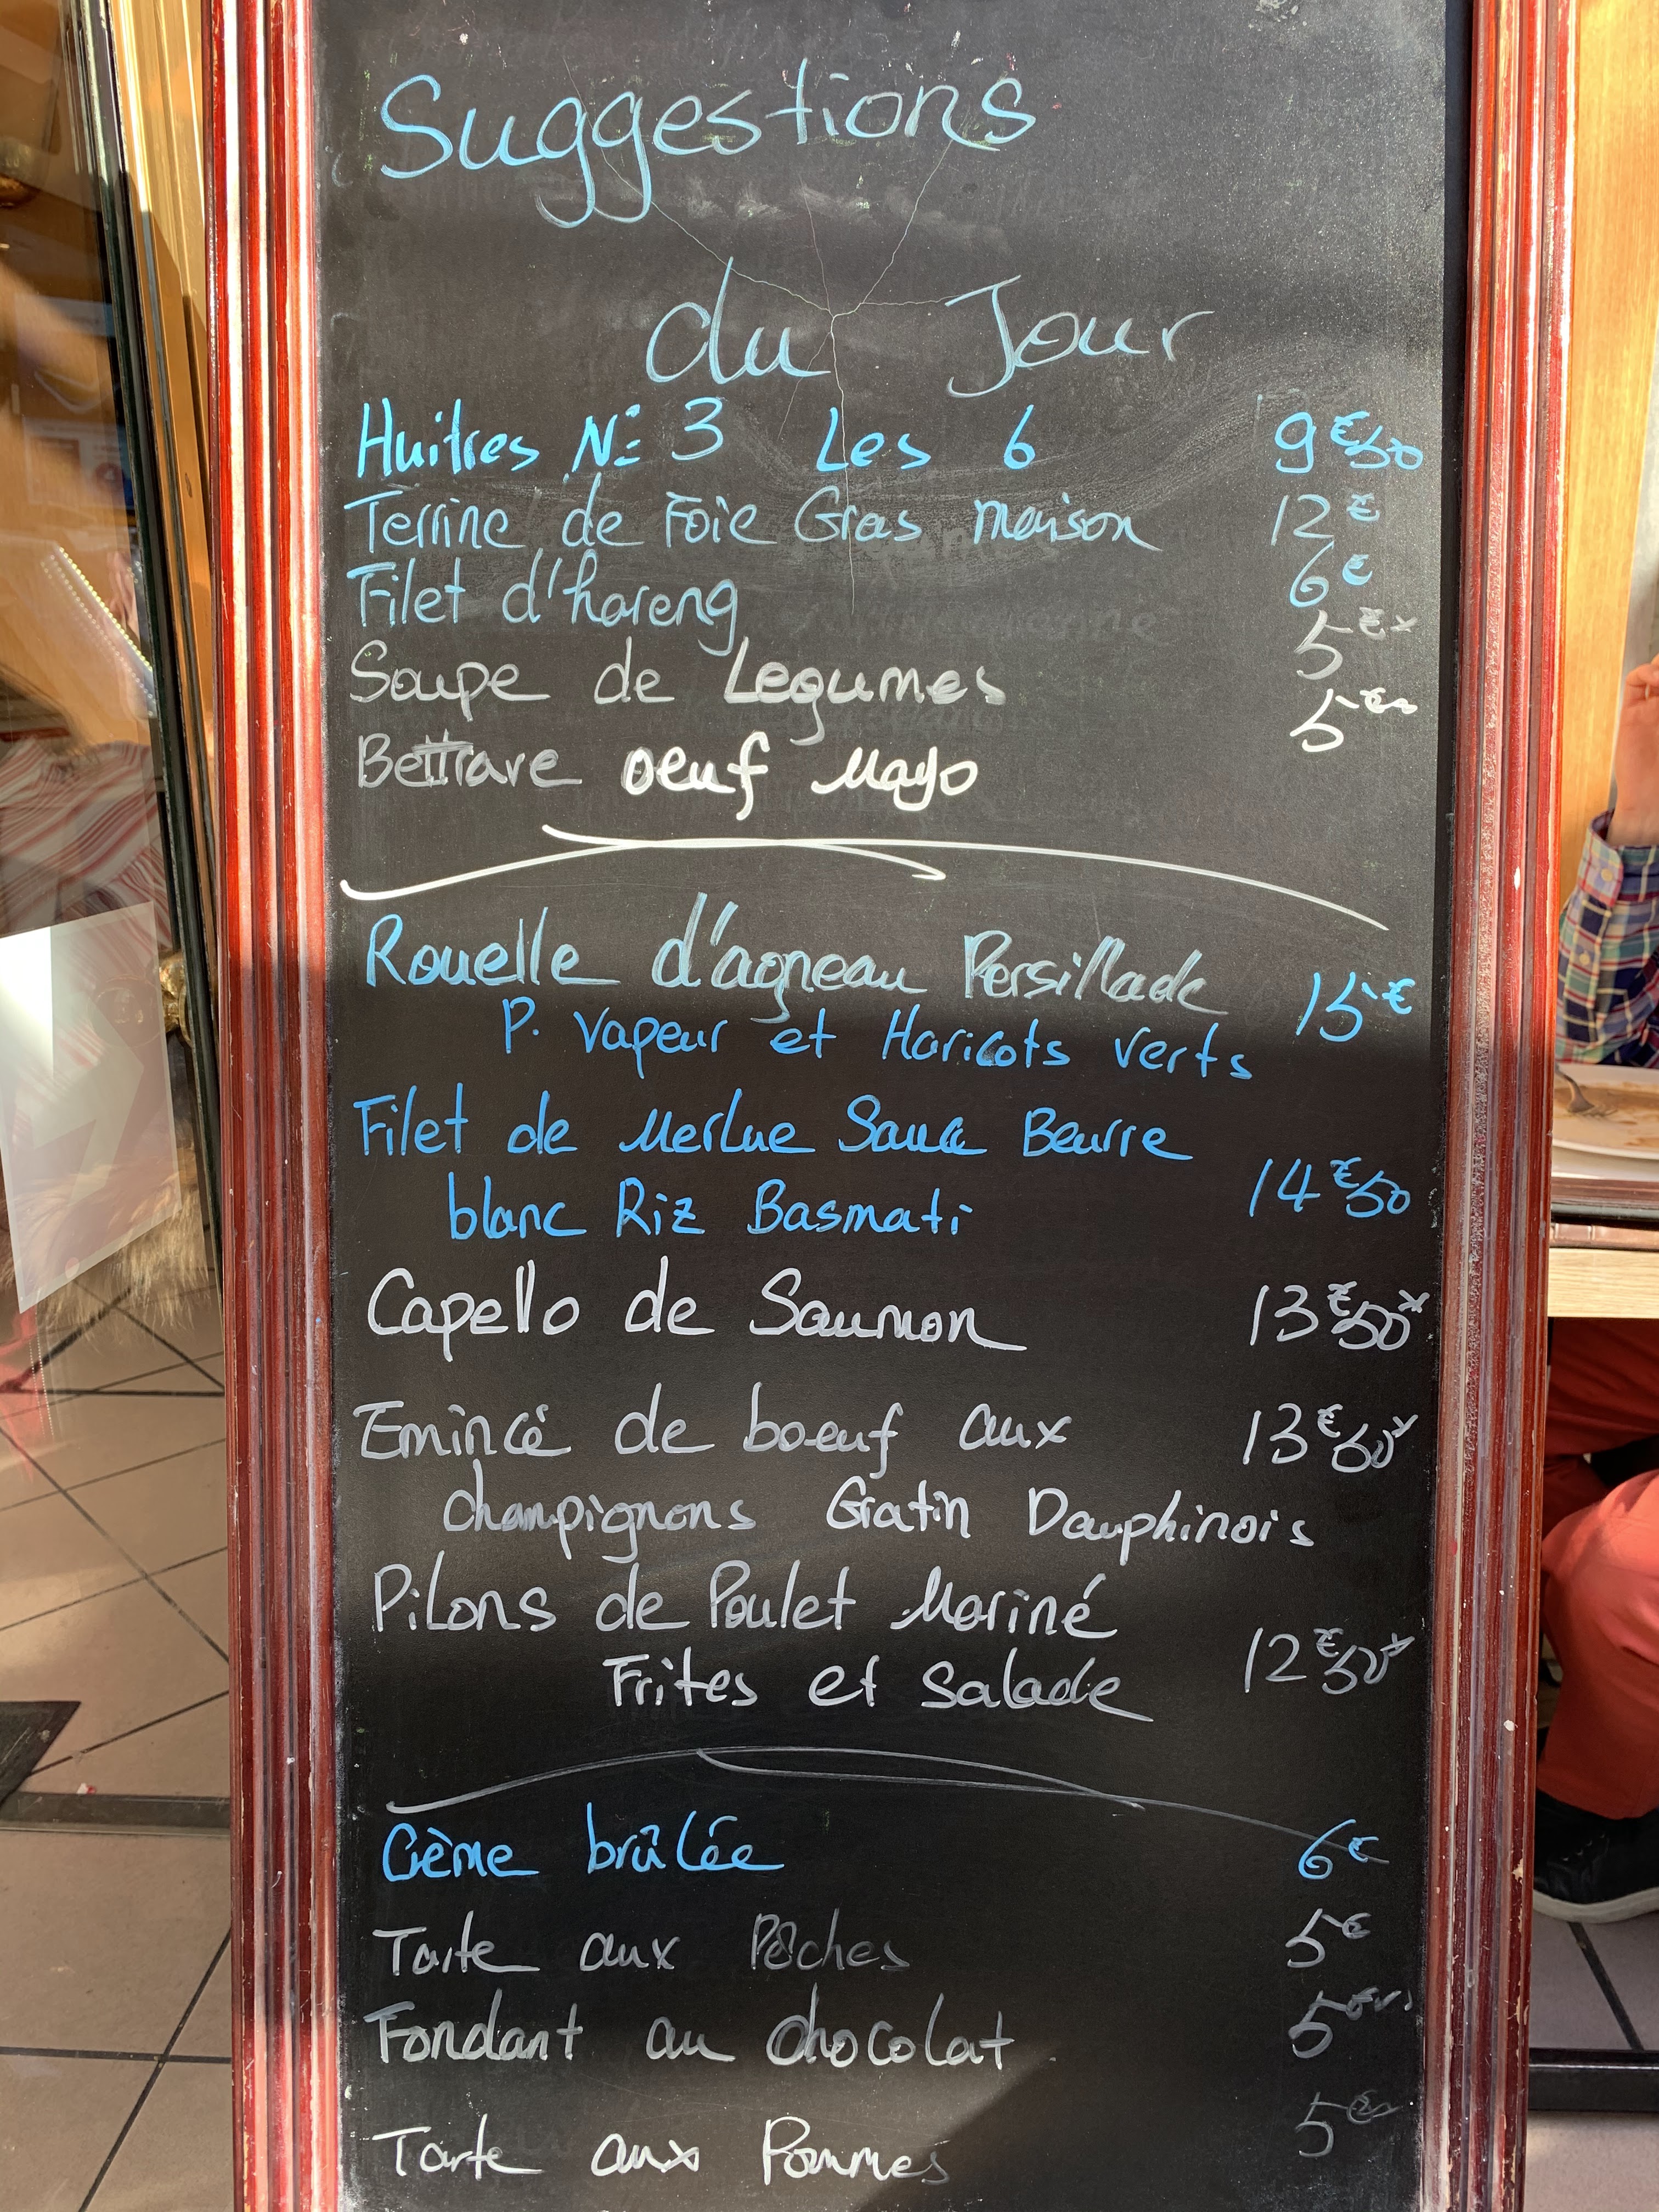 Suggestions
du Jour
Huitres N: 3 Les 6 9€50
Terrine de Foie Gras maison 12€
Filet d'hareng 6€
Soupe de Legumes 5€
Bettrave oeuf Mayo 5€
Rouelle d'agneau Persillade 15€
P. vapeur et Haricots verts
Filet de Merlue Sauce Beurre
blanc Riz Basmati 14€50
Capello de Saumon 13€50*
Emincé de boeuf aux 13€50*
champignons Gratin Dauphinois
Pilons de Poulet Mariné
Frites et Salade 12€50*
Crème brûlée 6€
Tarte aux Pêches 5€
Fondant au chocolat 5€
Tarte aux Pommes 5€